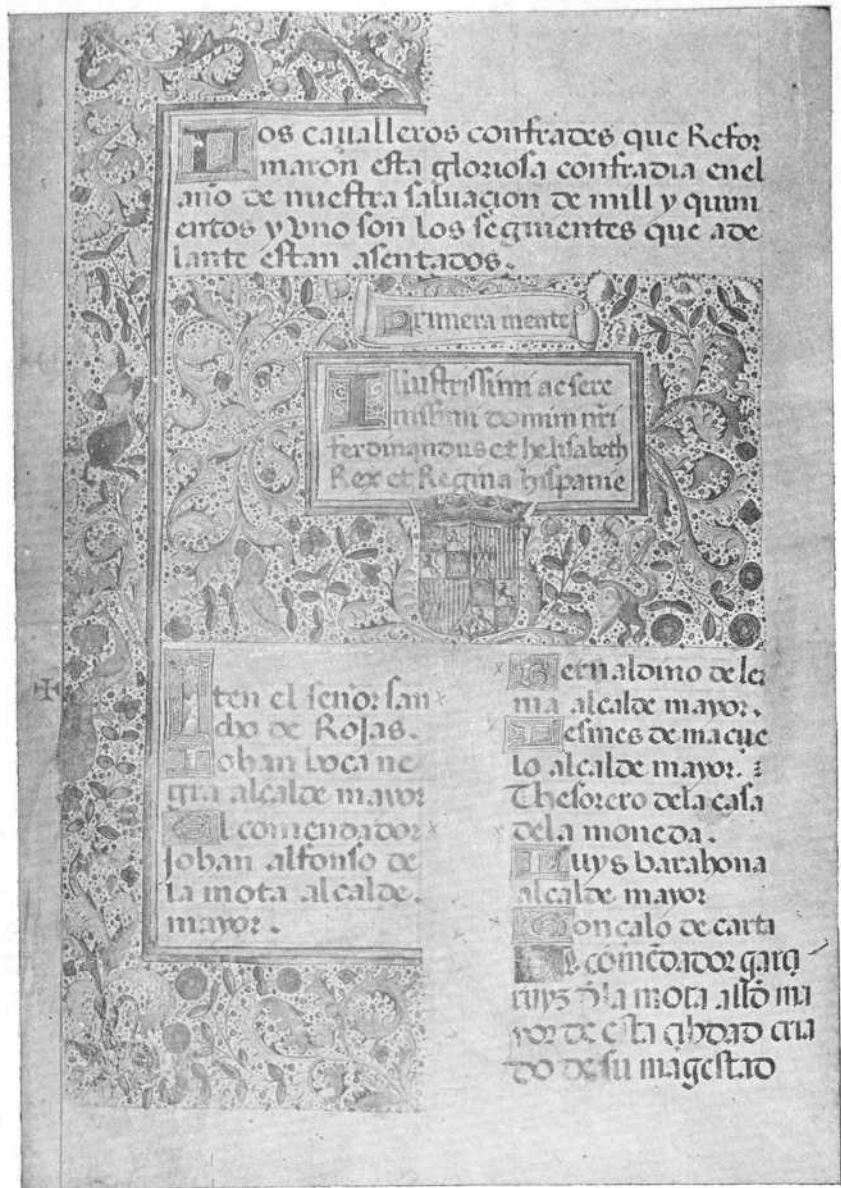 Los caualleros confrades que Refor
maron esta gloriosa confradia enel
año de nuestra saluaçion de mill y quini
entos y vno son los seguientes que ade
lante estan asentados.
Primera mente
Illustrissimi ac sere
nissimi domini nr̄i
ferdinandus et helisabeth
Rex et Regina hispanie
Iten el señor san
cho de Rojas.
Johan boca ne
gra alcalde mayor
El comendador
Johan alfonso de
la mota alcalde
mayor.
Bernaldino de ler
ma alcalde mayor.
Lesmes de maçue
lo alcalde mayor.
Thesorero dela casa
dela moneda.
Luys barahona
alcalde mayor
Gonçalo de carta
El comēdador garçi
rruys đla mota alłd ma
yor de esta çibdad cria
do de su magestad